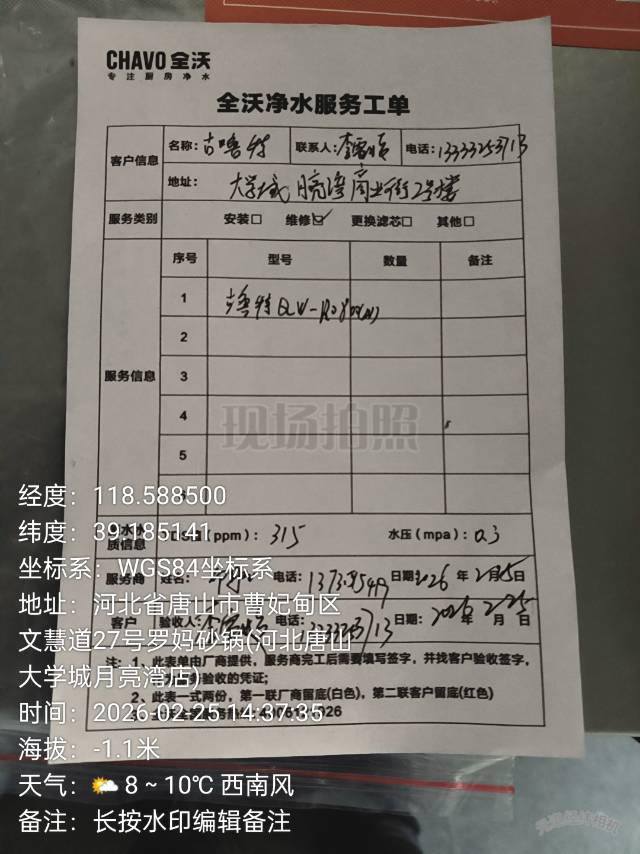 CHAVO 全沃
专注厨房净水
全沃净水服务工单
客户信息 名称：古鲁特 联系人：李 电话：13333253713
地址：大学城月亮湾商业街2号楼
服务类别 安装□ 维修☑ 更换滤芯□ 其他□
服务信息 序号 型号 数量 备注
1 古鲁特
2
3
4
5
现场拍照
质信息 (ppm)：315 水压(mpa)：0.3
服务商 姓名： 电话： 日期：2026年2月25日
客户 验收人： 电话：13333253713 日期：2026年2月25日
注：1、此表单由厂商提供，服务商完工后需要填写签字，并找客户验收签字，
务验收的凭证；
2、此表一式两份，第一联厂商留底(白色)，第二联客户留底(红色)
经度：118.588500
纬度：39.185141
坐标系：WGS84坐标系
地址：河北省唐山市曹妃甸区
文慧道27号罗妈砂锅(河北唐山
大学城月亮湾店)
时间：2026-02-25 14:37:35
海拔：-1.1米
天气：8 ~ 10℃ 西南风
备注：长按水印编辑备注